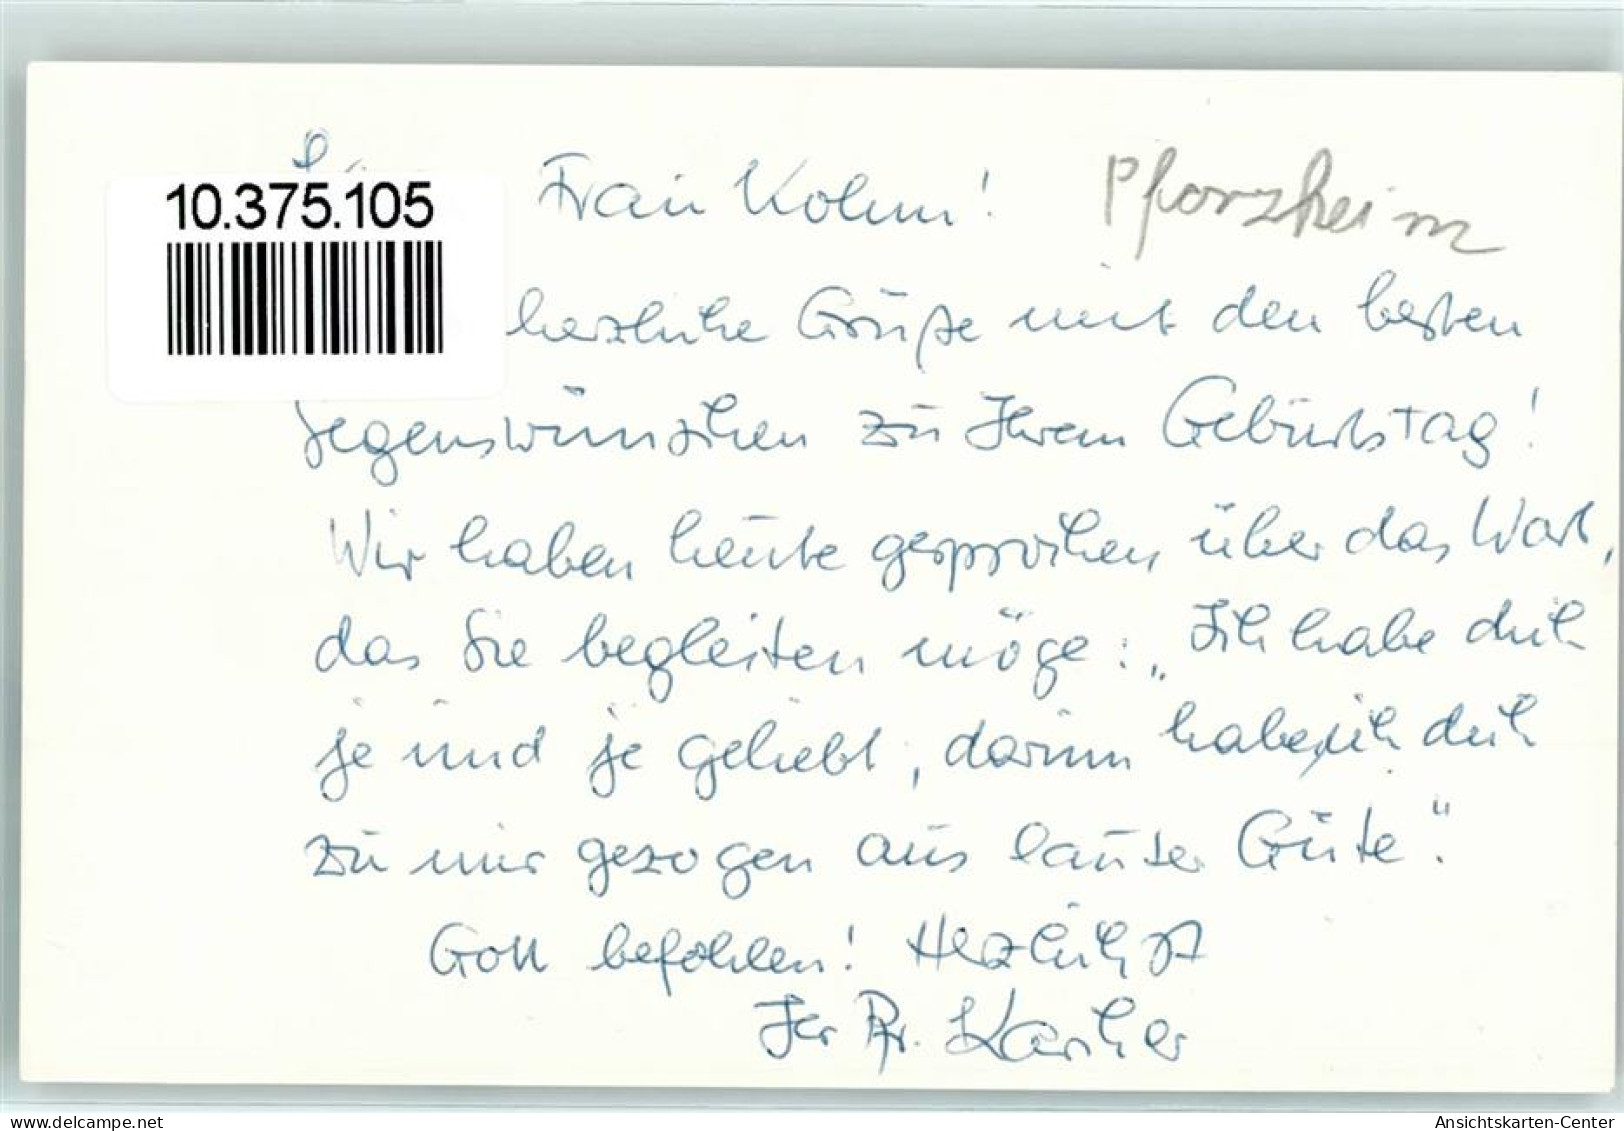 10.375.105
Frau Kohm!
Pforzheim
herzliche Grüße mit den besten
Segenswünschen zu Ihrem Geburtstag!
Wir haben heute gesprochen über das Wort,
das Sie begleiten möge: „Ich habe dich
je und je geliebt, darum habe ich dich
zu mir gezogen aus lauter Güte".
Gott befohlen! Herzlichst
Ihr Pfr. Karcher
delcampe.net
TheMixer
Ansichtskarten-Center